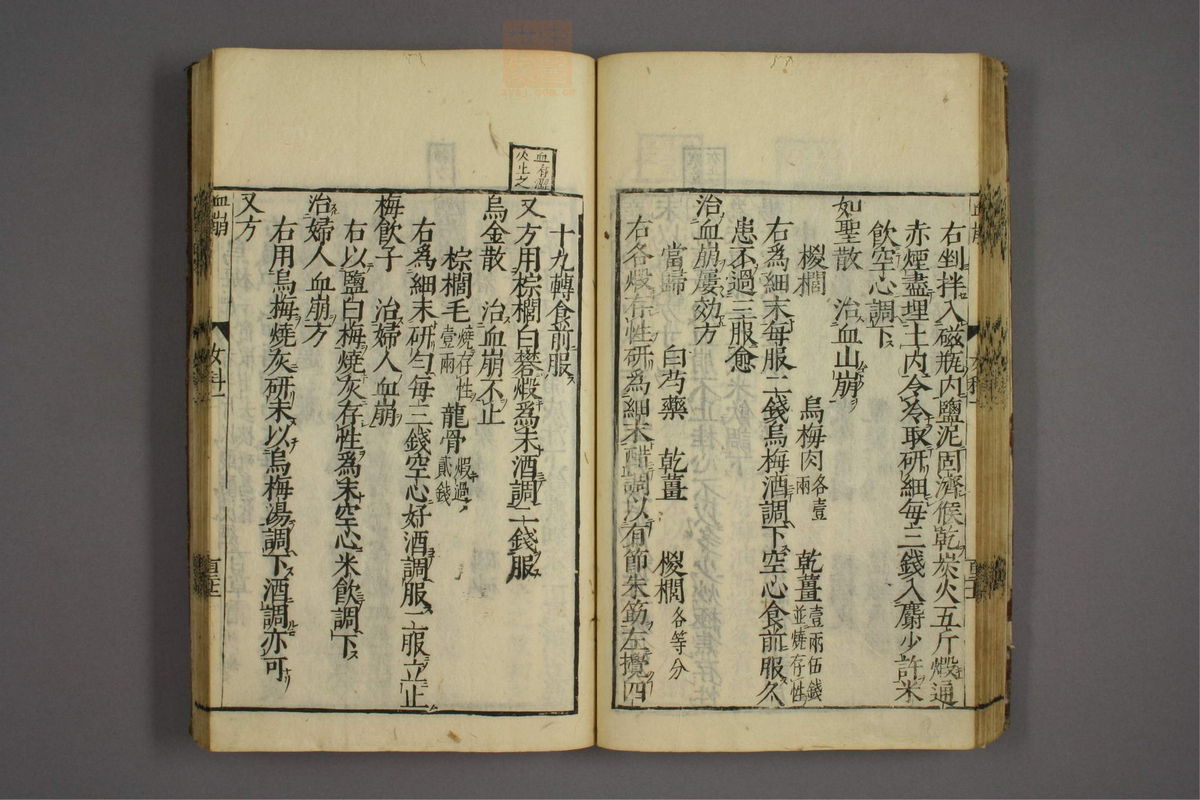 右剉拌入磁瓶內鹽泥固濟候乾炭火五斤煅通
赤煙盡埋土內令冷取研細每三錢入麝少許米
飲空心調下
如聖散　治血山崩
椶櫚　烏梅肉各壹兩　乾薑壹兩伍錢並燒存性
右爲細末每服二錢烏梅酒調下空心食前服久
患不過三服愈
治血崩屢効方
當歸　白芍藥　乾薑　椶櫚各等分
右各煅存性研爲細末醋調以有節朱筯左攪四
十九轉食前服
又方用棕櫚白礬煅爲末酒調二錢服
烏金散　治血崩不止
棕櫚毛燒存性壹兩　龍骨煆過貳錢
右爲細末研勻每三錢空心好酒調服一服立止
梅飲子　治婦人血崩
右以鹽白梅燒灰存性爲末空心米飲調下
治婦人血崩方
右用烏梅燒灰研末以烏梅湯調下酒調亦可
又方
血崩
女科一